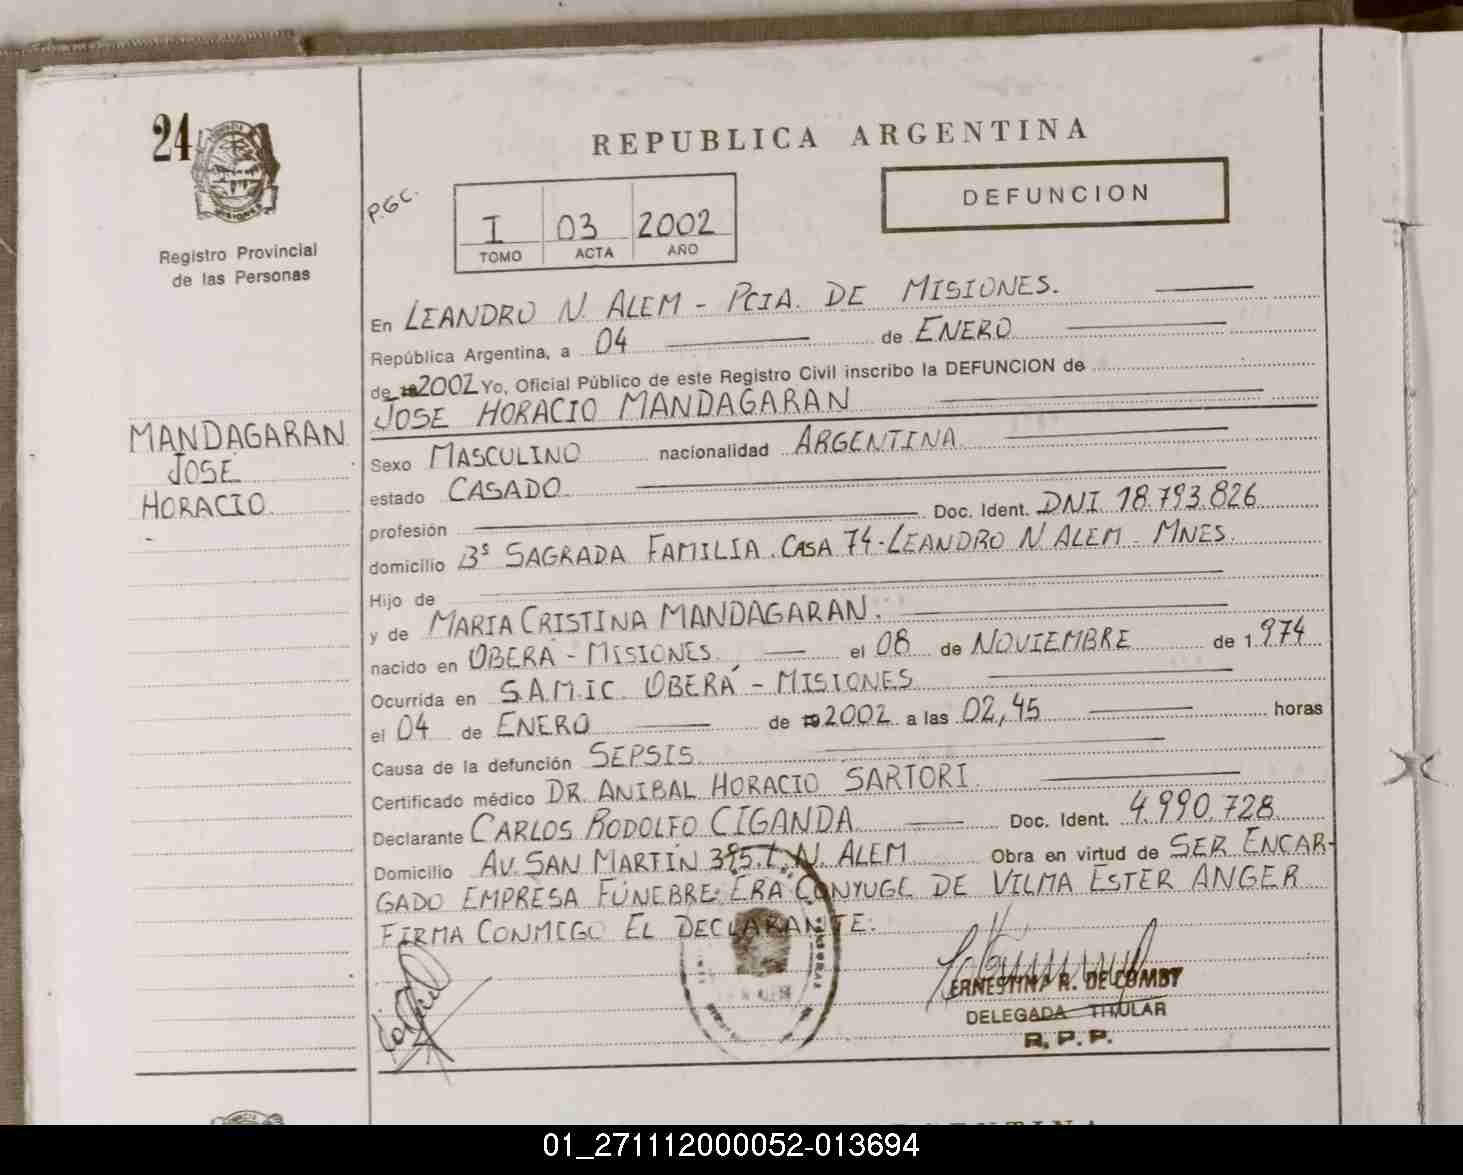 24
REPUBLICA ARGENTINA
DEFUNCION
P.G.C.
I 03 2002
TOMO ACTA AÑO
MISIONES
Registro Provincial
de las Personas
En LEANDRO N. ALEM - PCIA. DE MISIONES.
República Argentina, a 04 de ENERO
de 2002 Yo, Oficial Público de este Registro Civil inscribo la DEFUNCION de
JOSE HORACIO MANDAGARAN
MANDAGARAN
JOSÉ
HORACIO
Sexo MASCULINO nacionalidad ARGENTINA
estado CASADO
profesión Doc. Ident. DNI 18.793.826
domicilio Bº SAGRADA FAMILIA. CASA 74-LEANDRO N ALEM - MNES.
Hijo de
y de MARIA CRISTINA MANDAGARAN.
nacido en OBERA - MISIONES el 08 de NOVIEMBRE de 1.974
Ocurrida en S.A.M.I.C. OBERÁ - MISIONES
el 04 de ENERO de 2002 a las 02,45 horas
Causa de la defunción SEPSIS
Certificado médico DR. ANIBAL HORACIO SARTORI.
Declarante CARLOS RODOLFO CIGANDA Doc. Ident. 4.990.728
Domicilio AV. SAN MARTIN 395. L. N. ALEM Obra en virtud de SER ENCAR-
GADO EMPRESA FÚNEBRE: ERA CONYUGE DE VILMA ESTER ANGER
FIRMA CONMIGO EL DECLARANTE:
ERNESTINA R. DE COMBY
DELEGADA TITULAR
R. P. P.
01_271112000052-013694